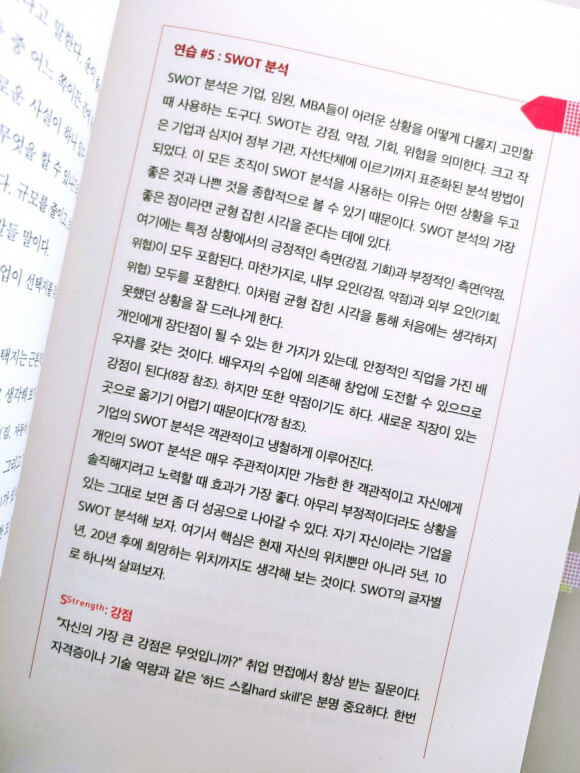 다고 말한다. 율이
중 어느 쪽이든 간에
로운 사실이 하나
무엇을 할 수 있
다. 규모를 줄이고
말들 말이다.
업이 선택지를
택지는 근본
생각해 보
(집, 자동차
그리고
연습 #5 : SWOT 분석
SWOT 분석은 기업, 임원, MBA들이 어려운 상황을 어떻게 다룰지 고민할
때 사용하는 도구다. SWOT는 강점, 약점, 기회, 위협을 의미한다. 크고 작
은 기업과 심지어 정부 기관, 자선단체에 이르기까지 표준화된 분석 방법이
되었다. 이 모든 조직이 SWOT 분석을 사용하는 이유는 어떤 상황을 두고
좋은 것과 나쁜 것을 종합적으로 볼 수 있기 때문이다. SWOT 분석의 가장
좋은 점이라면 균형 잡힌 시각을 준다는 데에 있다.
여기에는 특정 상황에서의 긍정적인 측면(강점, 기회)과 부정적인 측면(약점,
위협)이 모두 포함된다. 마찬가지로, 내부 요인(강점, 약점)과 외부 요인(기회,
위협) 모두를 포함한다. 이처럼 균형 잡힌 시각을 통해 처음에는 생각하지
못했던 상황을 잘 드러나게 한다.
개인에게 장단점이 될 수 있는 한 가지가 있는데, 안정적인 직업을 가진 배
우자를 갖는 것이다. 배우자의 수입에 의존해 창업에 도전할 수 있으므로
강점이 된다(8장 참조). 하지만 또한 약점이기도 하다. 새로운 직장이 있는
곳으로 옮기기 어렵기 때문이다(7장 참조).
기업의 SWOT 분석은 객관적이고 냉철하게 이루어진다.
개인의 SWOT 분석은 매우 주관적이지만 가능한 한 객관적이고 자신에게
솔직해지려고 노력할 때 효과가 가장 좋다. 아무리 부정적이더라도 상황을
있는 그대로 보면 좀 더 성공으로 나아갈 수 있다. 자기 자신이라는 기업을
SWOT 분석해 보자. 여기서 핵심은 현재 자신의 위치뿐만 아니라 5년, 10
년, 20년 후에 희망하는 위치까지도 생각해 보는 것이다. SWOT의 글자별
로 하나씩 살펴보자.
SStrength: 강점
“자신의 가장 큰 강점은 무엇입니까?” 취업 면접에서 항상 받는 질문이다.
자격증이나 기술 역량과 같은 ‘하드 스킬hard skill’은 분명 중요하다. 한번